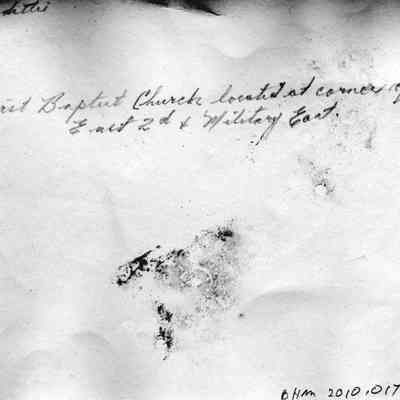 rst Baptist Church located at corner of
East 2d & Military East.
BHM 2010.017